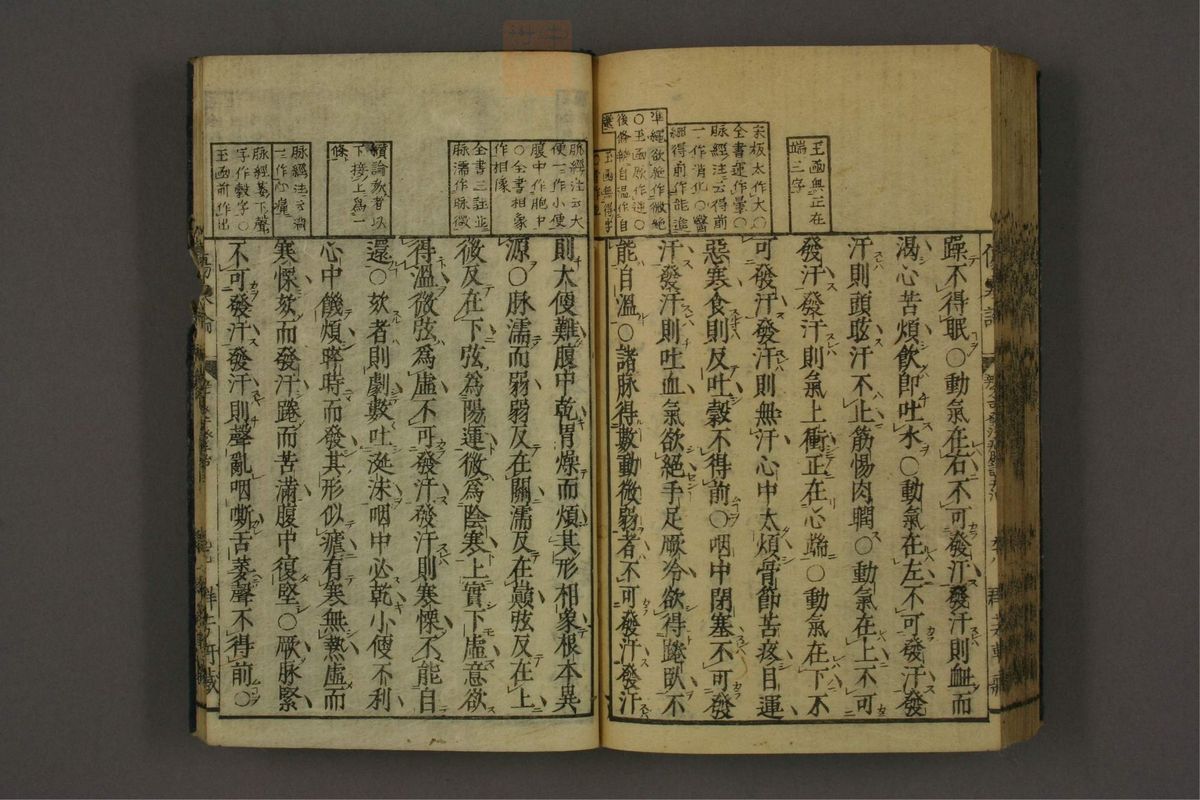 玉函無正在
端三字
宋板太作大○
全書運作暈○
脉經注云得前
一作消化○醫
經得前作能進
準繩欲絶作微絶
○玉函厥作逆○
後條無自温作自
躁不得眠○動氣在右不可發汗發汗則衄而
渴心苦煩飲即吐水○動氣在左不可發汗發
汗則頭眩汗不止筋惕肉瞤○動氣在上不可
發汗發汗則氣上衝正在心端○動氣在下不
可發汗發汗則無汗心中太煩骨節苦疼目運
惡寒食則反吐穀不得前○咽中閉塞不可發
汗發汗則吐血氣欲絶手足厥冷欲得踡臥不
能自溫○諸脉得數動微弱者不可發汗發汗
脉經注云大
便一作小便
腹中作胞中
○全書相象
作相像
全書三註並
脉濡作脉微
續論欬者以
下接上爲一
條
脉經注云滿
一作心痛
脉經萎下聲
字作穀字○
玉函前作出
則大便難腹中乾胃燥而煩其形相象根本異
源○脉濡而弱弱反在關濡反在巓弦反在上
微反在下弦爲陽運微爲陰寒上實下虛意欲
得溫微弦爲虛不可發汗發汗則寒慄不能自
還○欬者則劇數吐涎沫咽中必乾小便不利
心中饑煩晬時而發其形似瘧有寒無熱虛而
寒慄欬而發汗踡而苦滿腹中復堅○厥脉緊
不可發汗發汗則聲亂咽嘶舌萎聲不得前○